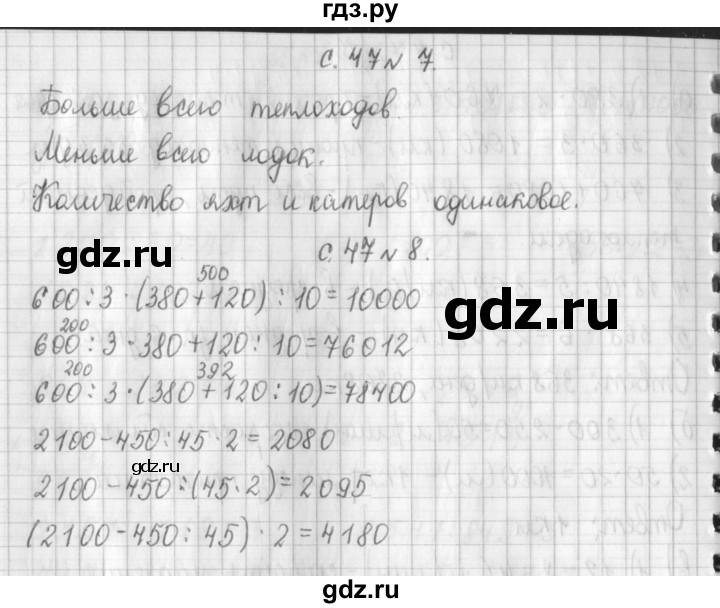 гдз.ру
с. 47 № 7.
Больше всего теплоходов.
Меньше всего лодок.
Количество яхт и катеров одинаковое.
gdz.ru
с. 47 № 8.
500
600 : 3 · (380 + 120) : 10 = 10000
gdz.ru
200
600 : 3 · 380 + 120 : 10 = 76012
200 392
600 : 3 · (380 + 120 : 10) = 78400
2100 - 450 : 45 · 2 = 2080
gdz.ru
2100 - 450 : (45 · 2) = 2095
(2100 - 450 : 45) · 2 = 4180
gdz.ru